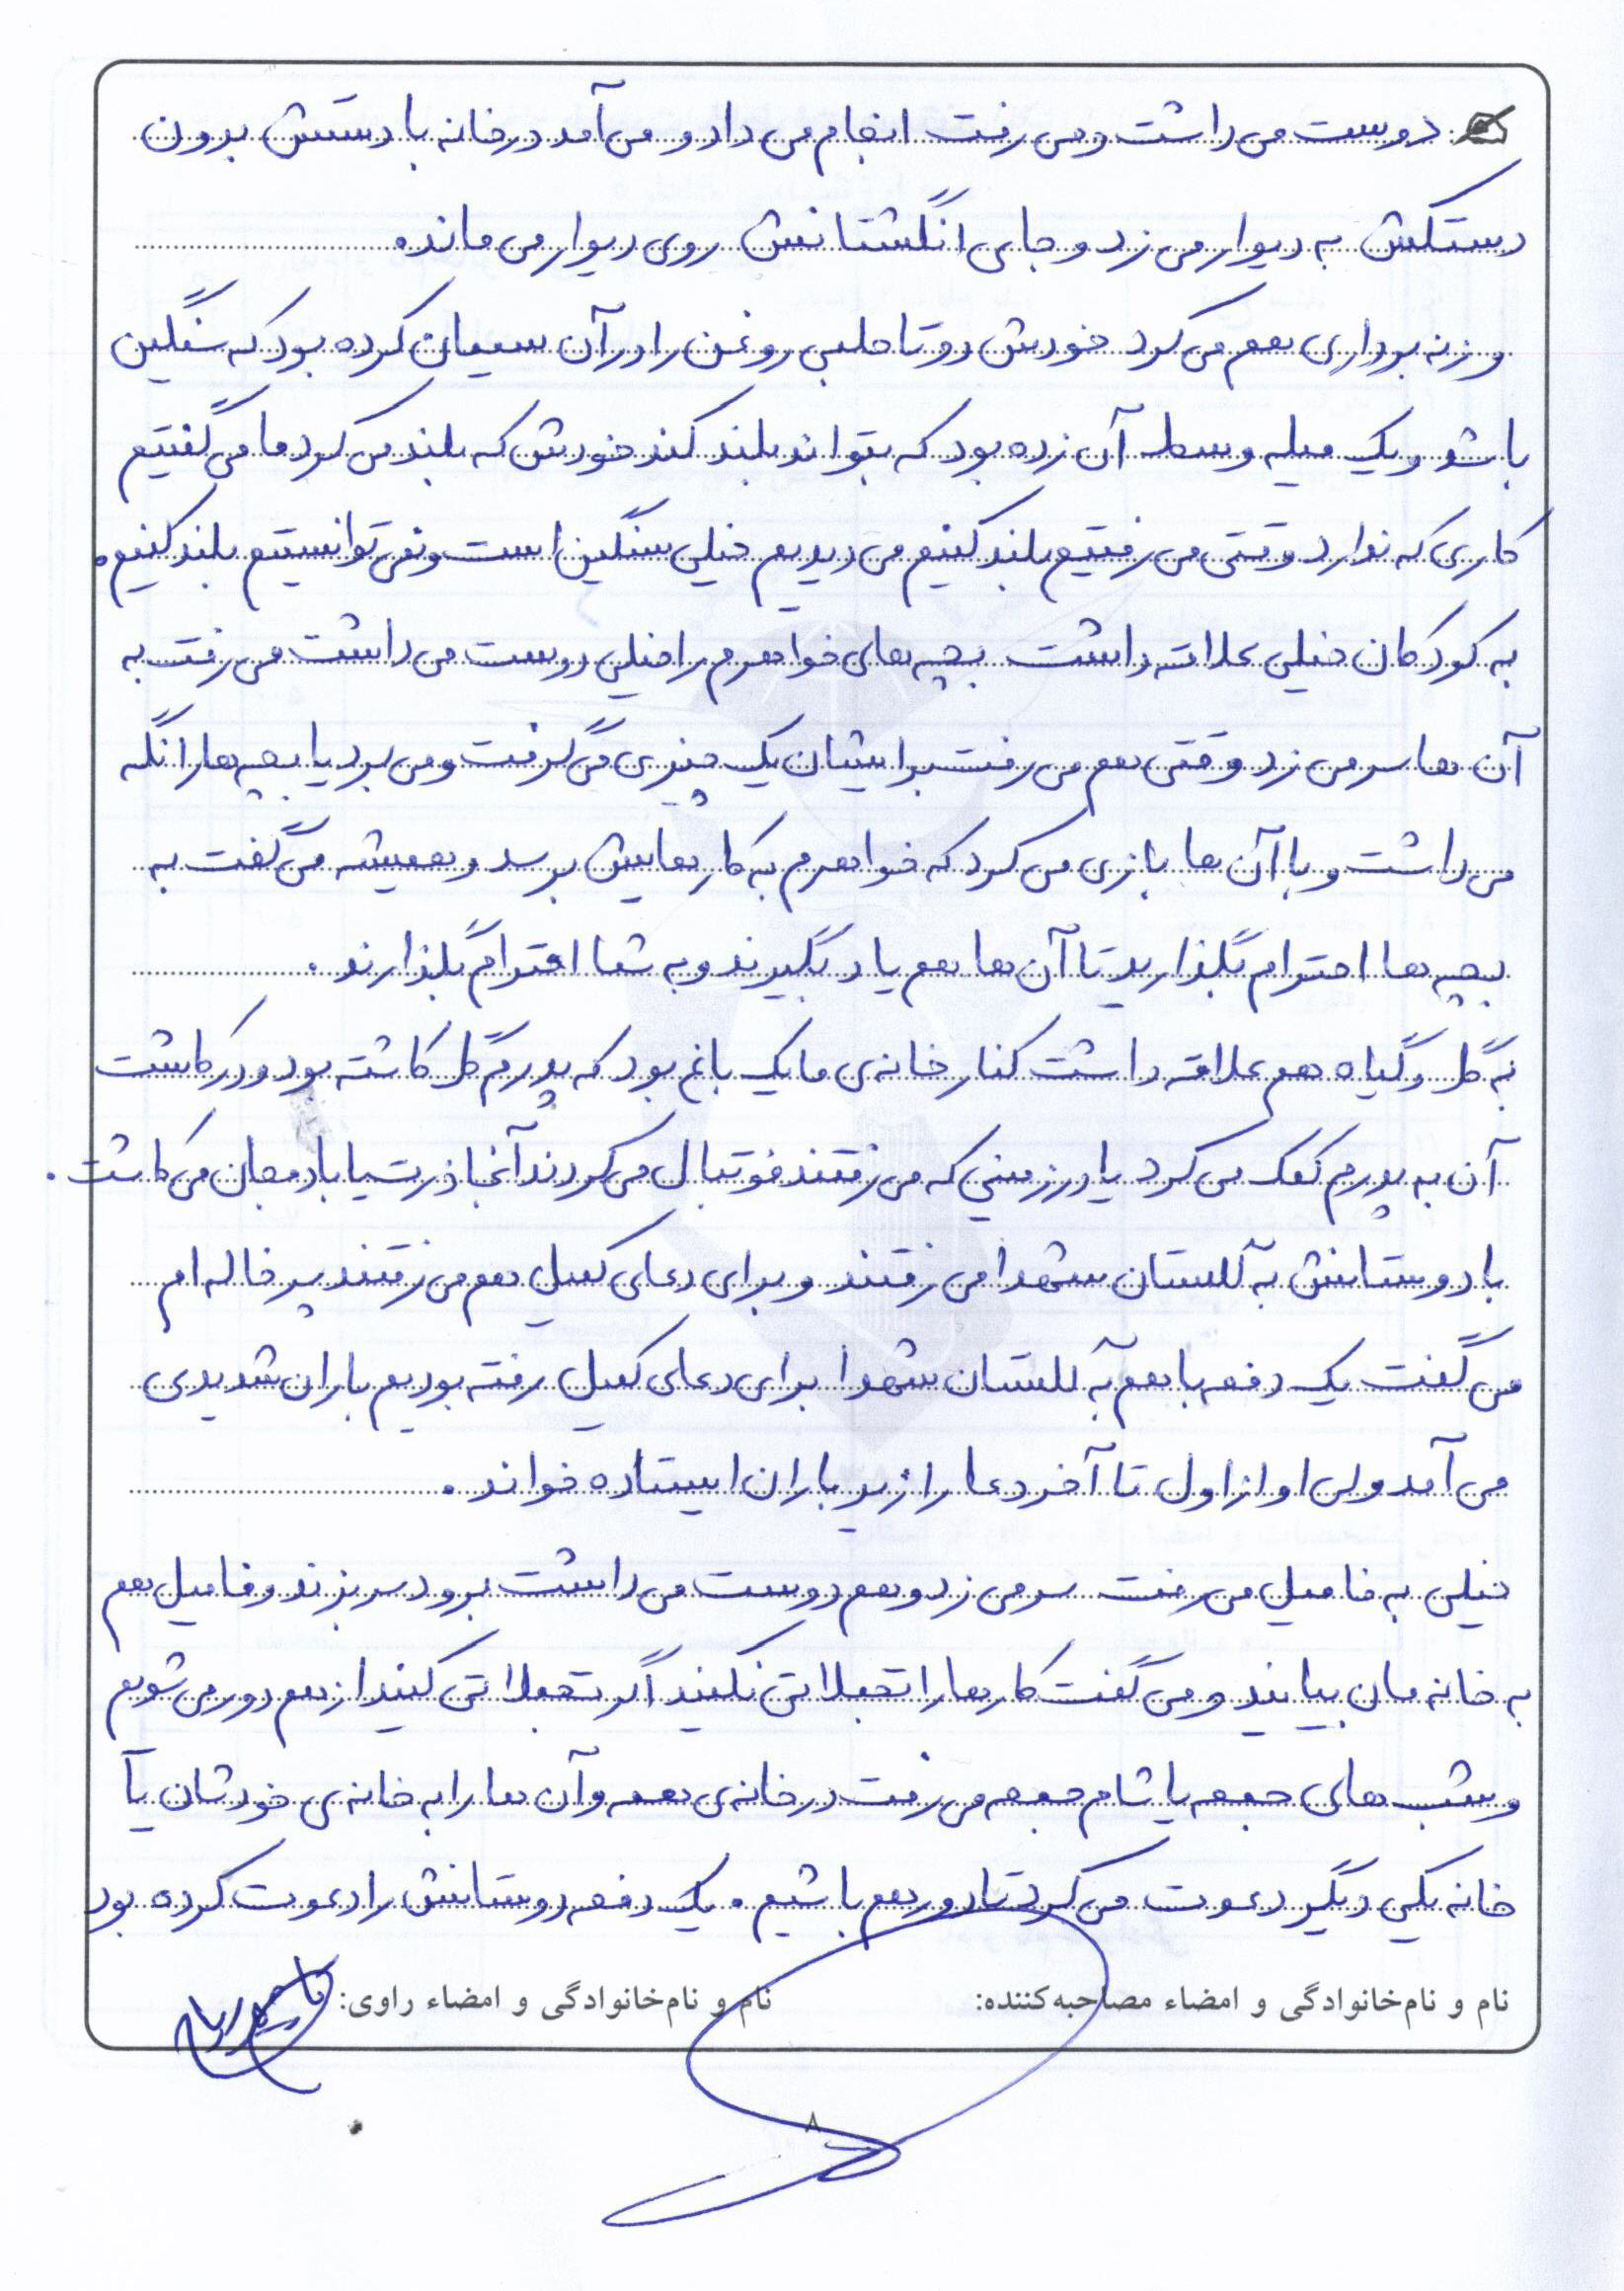 دوست می داشت و می رفت انجام می داد و می آمد در خانه با دستش بدون
دستکش به دیوار می زد و جای انگشتانش روی دیوار می ماند.
وزنه برداری هم می کرد خودش دو تا حلبی روغن را در آن سیمان کرده بود که سنگین
باشد و یک میله وسط آن زده بود که بتواند بلند کند خودش که بلند می کرد ما می گفتیم
کاری که ندارد وقتی می رفتیم بلند کنیم می دیدیم خیلی سنگین است و نمی توانستیم بلند کنیم.
به کودکان خیلی علاقه داشت بچه های خواهرم را خیلی دوست می داشت می رفت به
آن ها سر می زد وقتی هم می رفت برایشان یک چیزی می گرفت و می برد یا بچه ها را نگه
می داشت و با آن ها بازی می کرد که خواهرم به کارهایش برسد و همیشه می گفت به
بچه ها احترام بگذارید تا آن ها هم یاد بگیرند و به شما احترام بگذارند.
به گل و گیاه هم علاقه داشت کنار خانه ی ما یک باغ بود که پدرم گل کاشته بود و در کاشت
آن به پدرم کمک می کرد یا در زمینی که می رفتند فوتبال می کردند آنجا ذرت یا بادمجان می کاشت.
با دوستانش به گلستان شهدا می رفتند و برای دعای کمیل هم می رفتند پسر خاله ام
می گفت یک دفعه با هم به گلستان شهدا برای دعای کمیل رفته بودیم باران شدیدی
می آمد ولی او از اول تا آخر دعا را زیر باران ایستاده خواند.
خیلی به فامیل می رفت سر می زد و هم دوست می داشت برود سر بزند و فامیل هم
به خانه مان بیایند و می گفت کارها را تجملاتی نکنید اگر تجملاتی کنید از هم دور می شویم
و شب های جمعه یا شام جمعه می رفت در خانه ی همه و آن ها را به خانه ی خودشان یا
خانه یکی دیگر دعوت می کرد تا دور هم باشیم. یک دفعه دوستانش را دعوت کرده بود
نام و نام‌خانوادگی و امضاء مصاحبه‌کننده: نام و نام‌خانوادگی و امضاء راوی:
۸